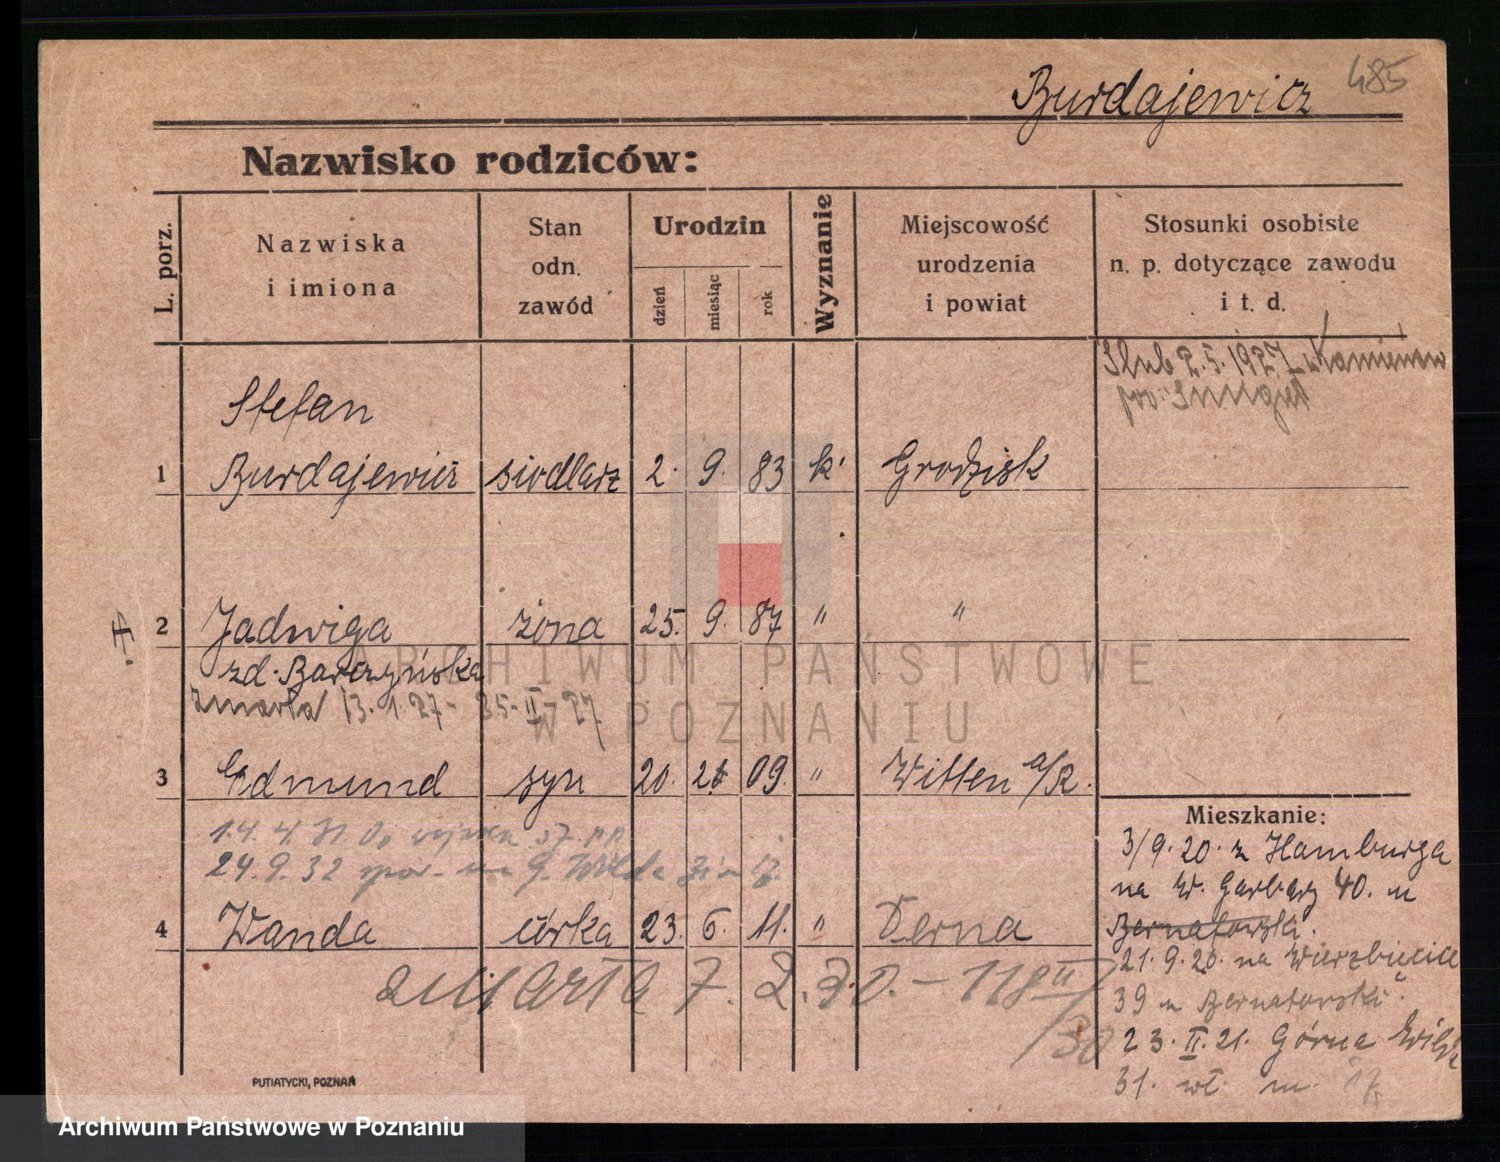 Burdajewicz 485
Nazwisko rodziców:
L. porz.
Nazwiska
i imiona
Stan
odn.
zawód
Urodzin
dzień
miesiąc
rok
Wyznanie
Miejscowość
urodzenia
i powiat
Stosunki osobiste
n. p. dotyczące zawodu
i t. d.
Ślub 2.5.1927
Stefan
1 Burdajewicz siodlarz 2. 9. 83 k. Grodzisk
2 Jadwiga żona 25. 9. 87 " "
zd. Barczyńska
zmarła 13.1.27 - 35-II-27
3 Edmund syn 20. 09. " Witten a/R.
14.4.31. Do wojska 57. pp
24.9.32 G. Wilda 31 m 17.
4 Wanda córka 23. 6. 11. " Derna
zmarła 7.2.30. - 118 II/30
Mieszkanie:
3/9.20. z Hamburga
na W. Garbary 40. u
Bernatowski.
21.9.20. na Wierzbięcice
39 u Bernatowski.
23.II.21. Górna Wilda
31. wł. m. 17.
PUTIATYCKI, POZNAŃ
ARCHIWUM PAŃSTWOWE
W POZNANIU
Archiwum Państwowe w Poznaniu